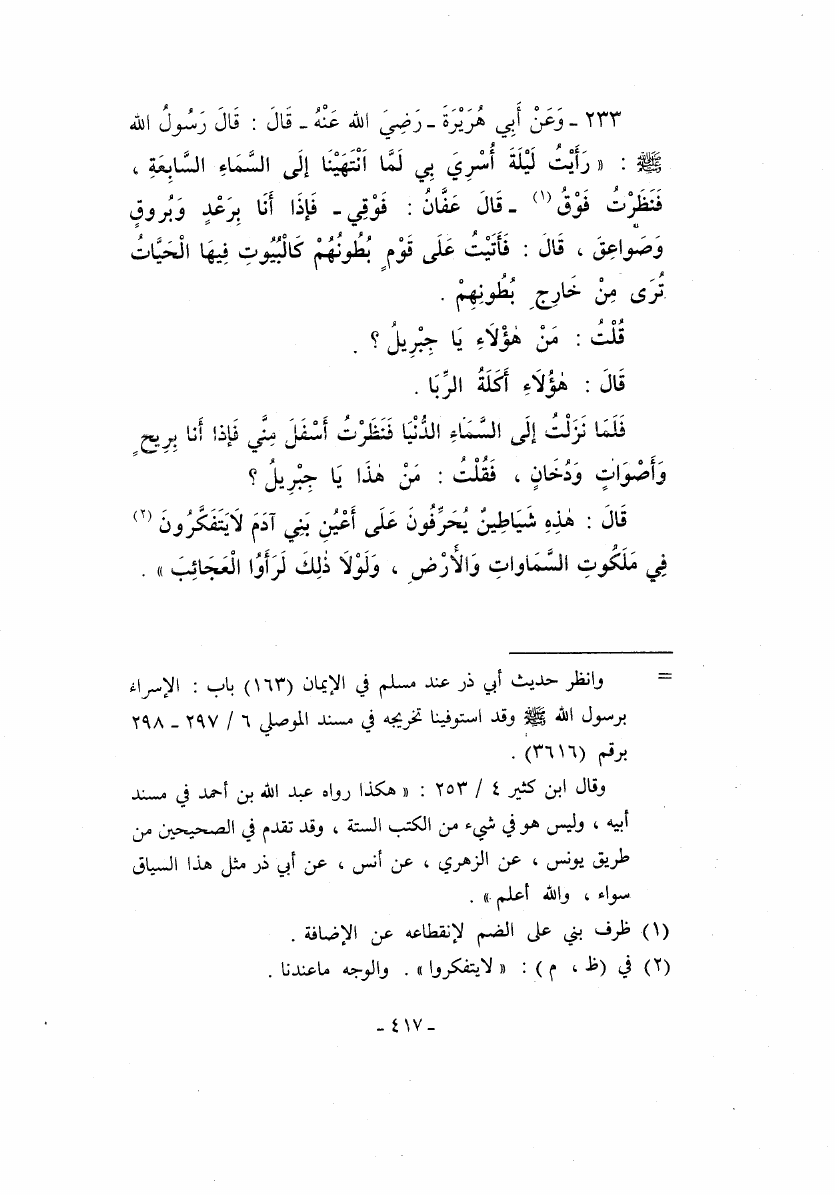 ٢٣٣ - وَعَنْ أَبِي هُرَيْرَةَ - رَضِيَ الله عَنْهُ - قَالَ : قَالَ رَسُولُ الله
ﷺ : « رَأَيْتُ لَيْلَةَ أُسْرِيَ بِي لَمَّا انْتَهَيْنَا إِلَى السَّمَاءِ السَّابِعَةِ ،
فَنَظَرْتُ فَوْقُ (١) - قَالَ عَفَّانُ : فَوْقِي - فَإِذَا أَنَا بِرَعْدٍ وَبُروقٍ
وَصَواعِقَ ، قَالَ : فَأَتَيْتُ عَلَى قَوْمٍ بُطُونُهُمْ كَالْبُيُوتِ فِيهَا الْحَيَّاتُ
تُرَى مِنْ خَارِجِ بُطُونِهِمْ .
قُلْتُ : مَنْ هٰؤُلَاءِ يَا جِبْرِيلُ ؟ .
قَالَ : هٰؤُلَاءِ أَكَلَةُ الرِّبَا .
فَلَمَا نَزَلْتُ إِلَى السَّمَاءِ الدُّنْيَا فَنَظَرْتُ أَسْفَلَ مِنَّي فَإذا أَنا بِرِيحٍ
وَأَصْوَاتٍ وَدُخَانٍ ، فَقُلْتُ : مَنْ هٰذَا يَا جِبْرِيلُ ؟
قَالَ : هٰذِهِ شَيَاطِينٌ يُحَرِّفُونَ عَلَى أَعْيُنِ بَنِي آدَمَ لَايَتَفَكَّرُونَ (٢)
فِي مَلَكُوتِ السَّمَاواتِ وَالأَرْضِ ، وَلَوْلَا ذٰلِكَ لَرَأَوُا الْعَجَائِبَ » .
= وانظر حديث أبي ذر عند مسلم في الإيمان (١٦٣) باب : الإسراء
برسول الله ﷺ وقد استوفينا تخريجه في مسند الموصلي ٦ / ٢٩٧ - ٢٩٨
برقم (٣٦١٦) .
وقال ابن كثير ٤ / ٢٥٣ : « هكذا رواه عبد الله بن أحمد في مسند
أبيه ، وليس هو في شيء من الكتب الستة ، وقد تقدم في الصحيحين من
طريق يونس ، عن الزهري ، عن أنس ، عن أبي ذر مثل هذا السياق
سواء ، والله أعلم » .
(١) ظرف بني على الضم لإنقطاعه عن الإضافة .
(٢) في (ظ ، م) : « لايتفكروا » . والوجه ماعندنا .
- ٤١٧ -